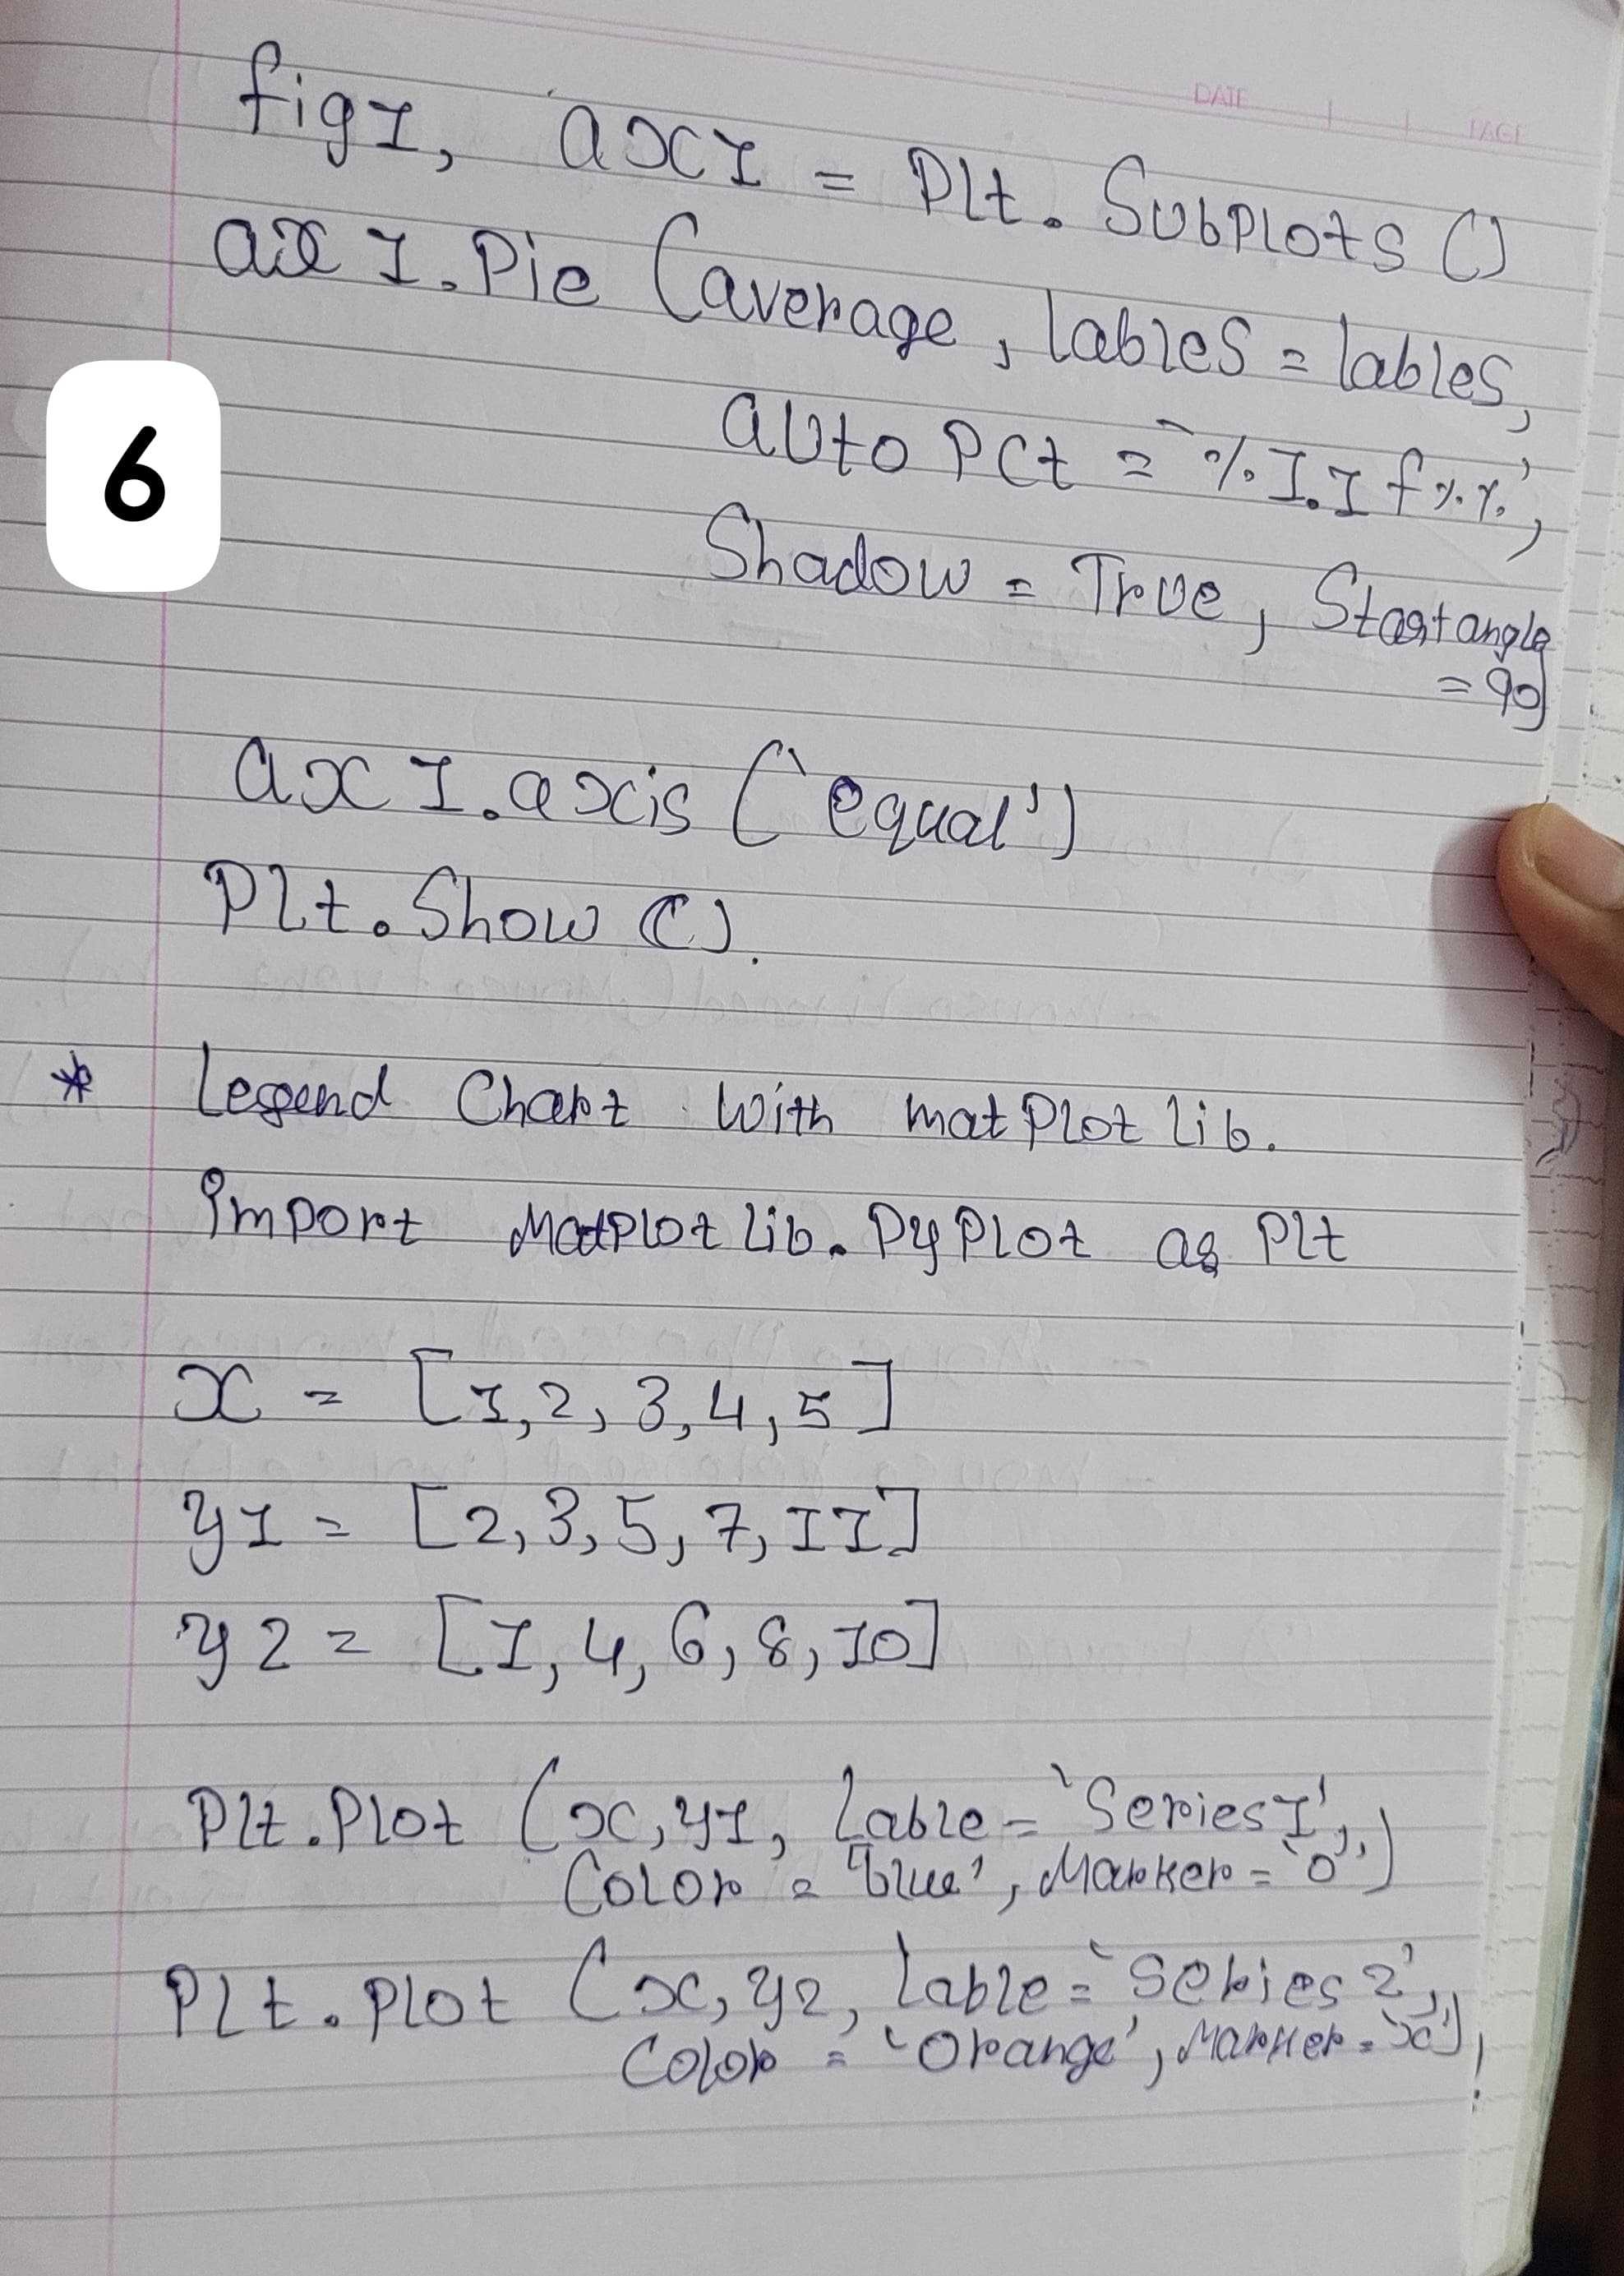 DATE
PAGE
fig1, ax1 = Plt. Subplots ()
ax 1. Pie (average, lables = lables,
auto Pct = '%1.1f%%',
Shadow = True, Startangle
= 90)
6
ax 1.axis ('equal')
Plt. Show ().
* Legend Chart with matPlotlib.
import MatPlotlib. PyPlot as Plt
x = [1,2,3,4,5]
y1 = [2,3,5,7,11]
y2 = [1,4,6,8,10]
Plt.Plot (x,y1, lable = 'Series1',
Color = 'blue', Marker = 'o',)
Plt. Plot (x, y2, lable = 'Series 2',
Color = 'Orange', Marker = 'x')